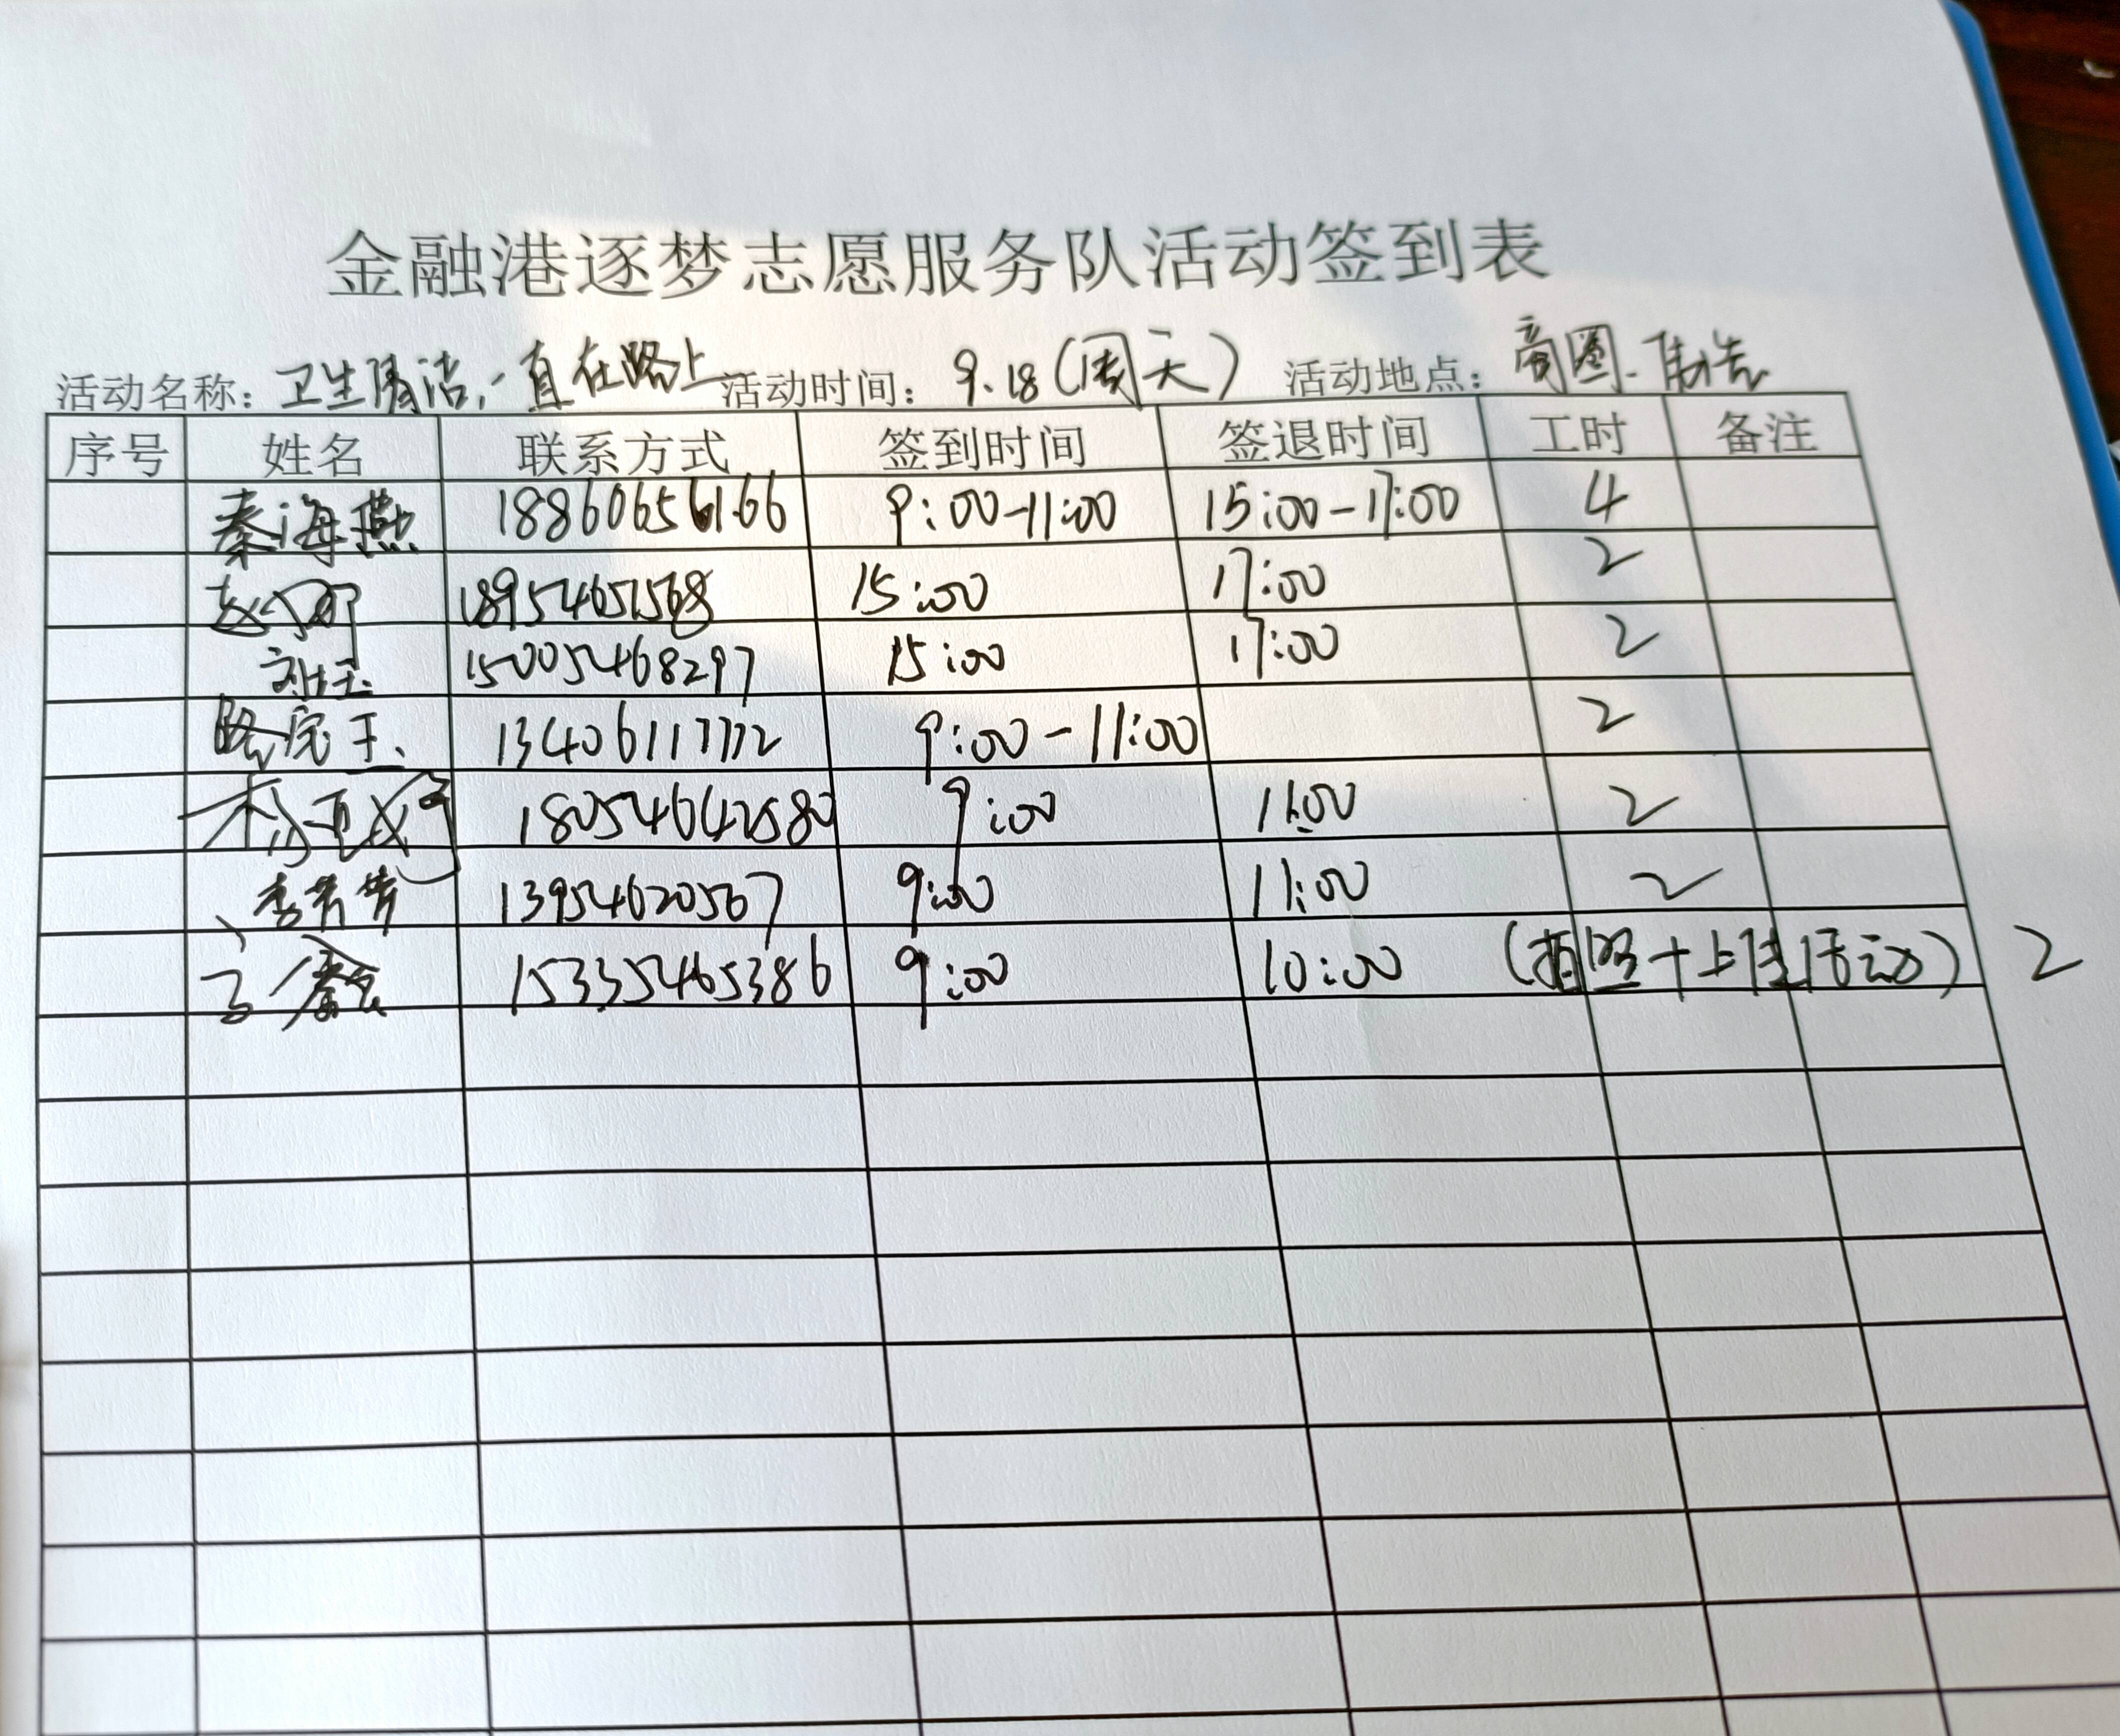 金融港逐梦志愿服务队活动签到表
活动名称：卫生清洁，一直在路上 活动时间：9.18（周天） 活动地点：商圈
序号 姓名 联系方式 签到时间 签退时间 工时 备注
秦海燕 18860656166 9:00-11:00 15:00-17:00 4
18954651568 15:00 17:00 2
15005468297 15:00 17:00 2
13406117772 9:00-11:00 2
18054642580 9:00 11:00 2
李芳芳 13954620567 9:00 11:00 2
15335465386 9:00 10:00 （拍照+上传活动） 2